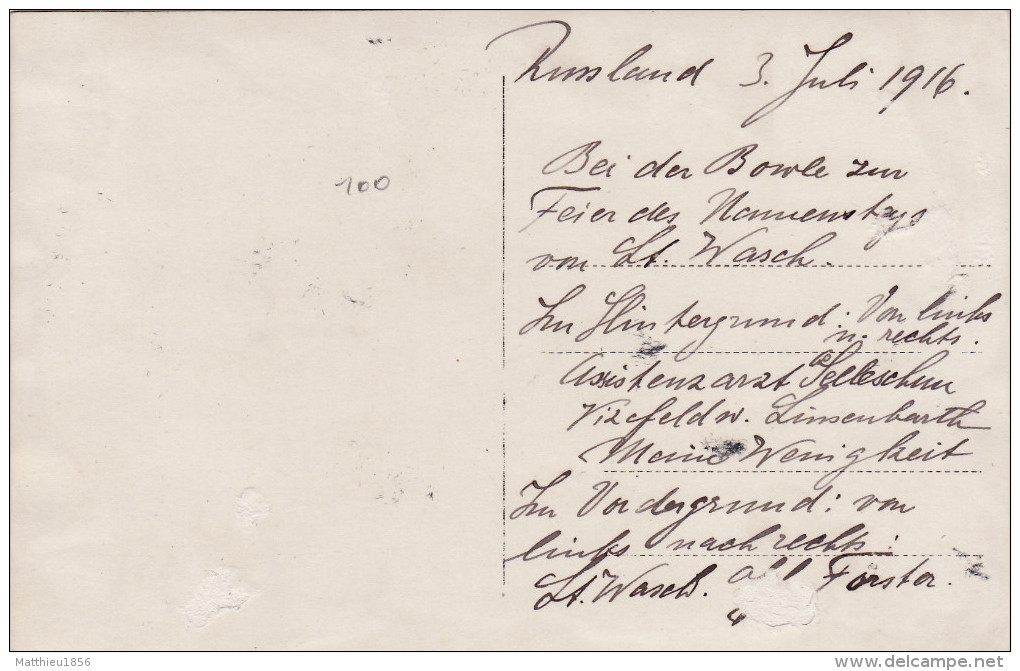 Russland 3. Juli 1916.
100
Bei der Bowle zur
Feier des Namenstags
von Lt. Wasch.
Im Hintergrund: Von links
n. rechts.
Assistenzarzt
Vizefeldw. Linsenbarth
Meine Wenigkeit
Im Vordergrund: von
links nach rechts:
Lt. Wasch. Förster.
Matthieu1856
delcampe.net